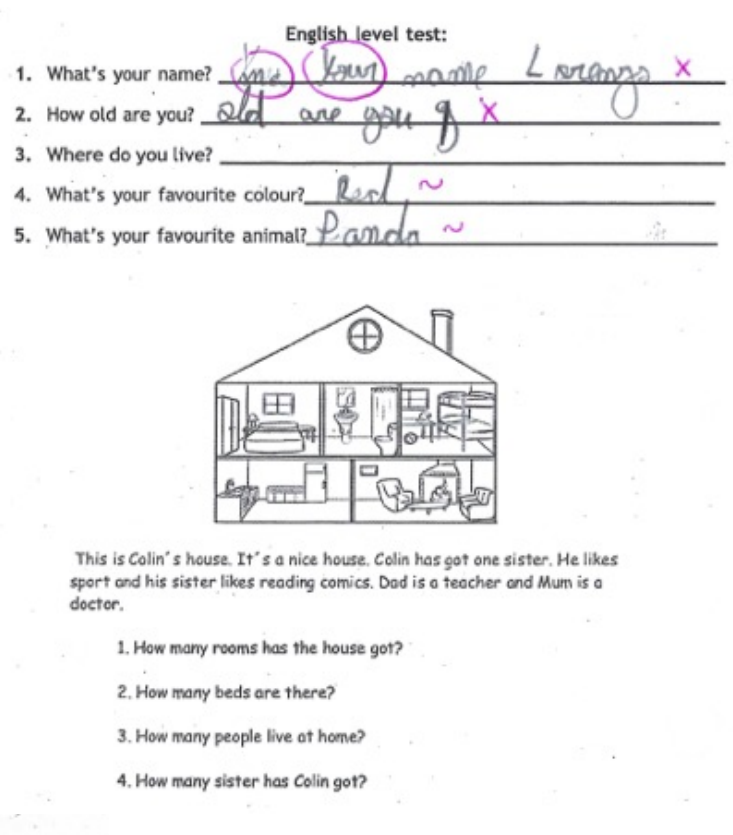 English level test:
1. What's your name? Your name Lorenzo x
2. How old are you? old are you 9 x
3. Where do you live?
4. What's your favourite colour? Red ~
5. What's your favourite animal? Panda ~
This is Colin's house. It's a nice house. Colin has got one sister. He likes
sport and his sister likes reading comics. Dad is a teacher and Mum is a
doctor.
1. How many rooms has the house got?
2. How many beds are there?
3. How many people live at home?
4. How many sister has Colin got?